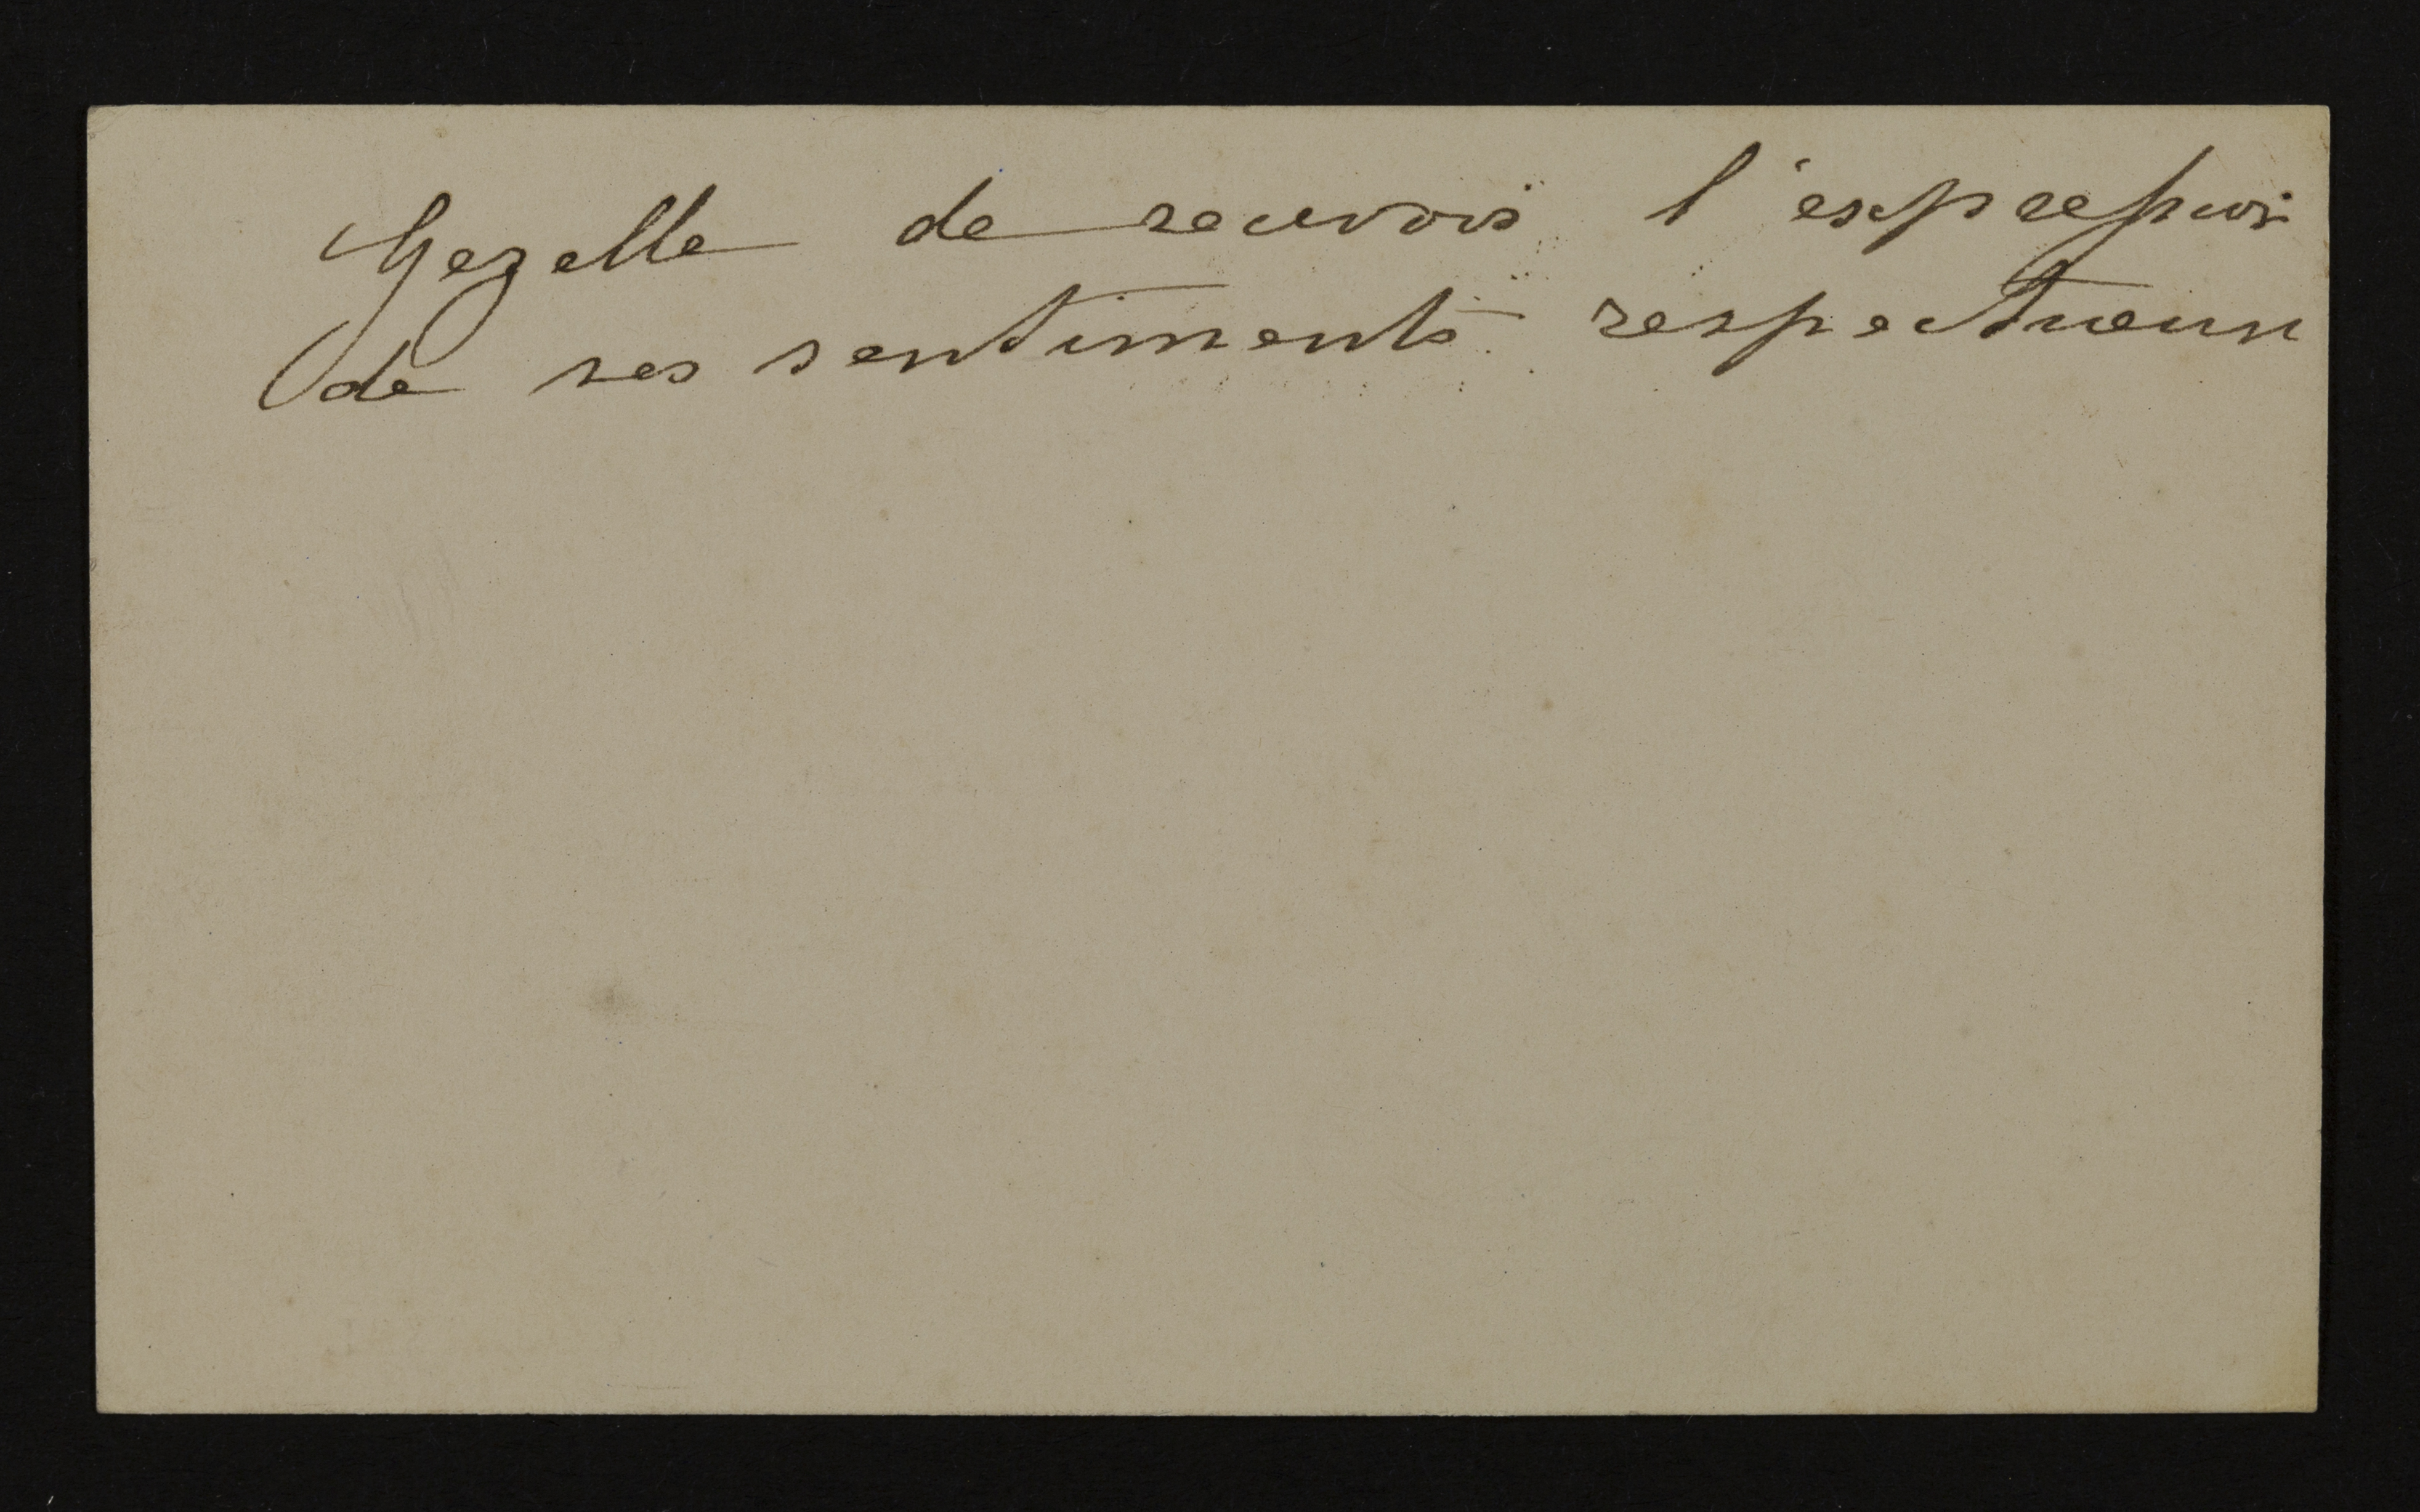 Gezelle de recevoir l'expression
de ses sentiments respectueux